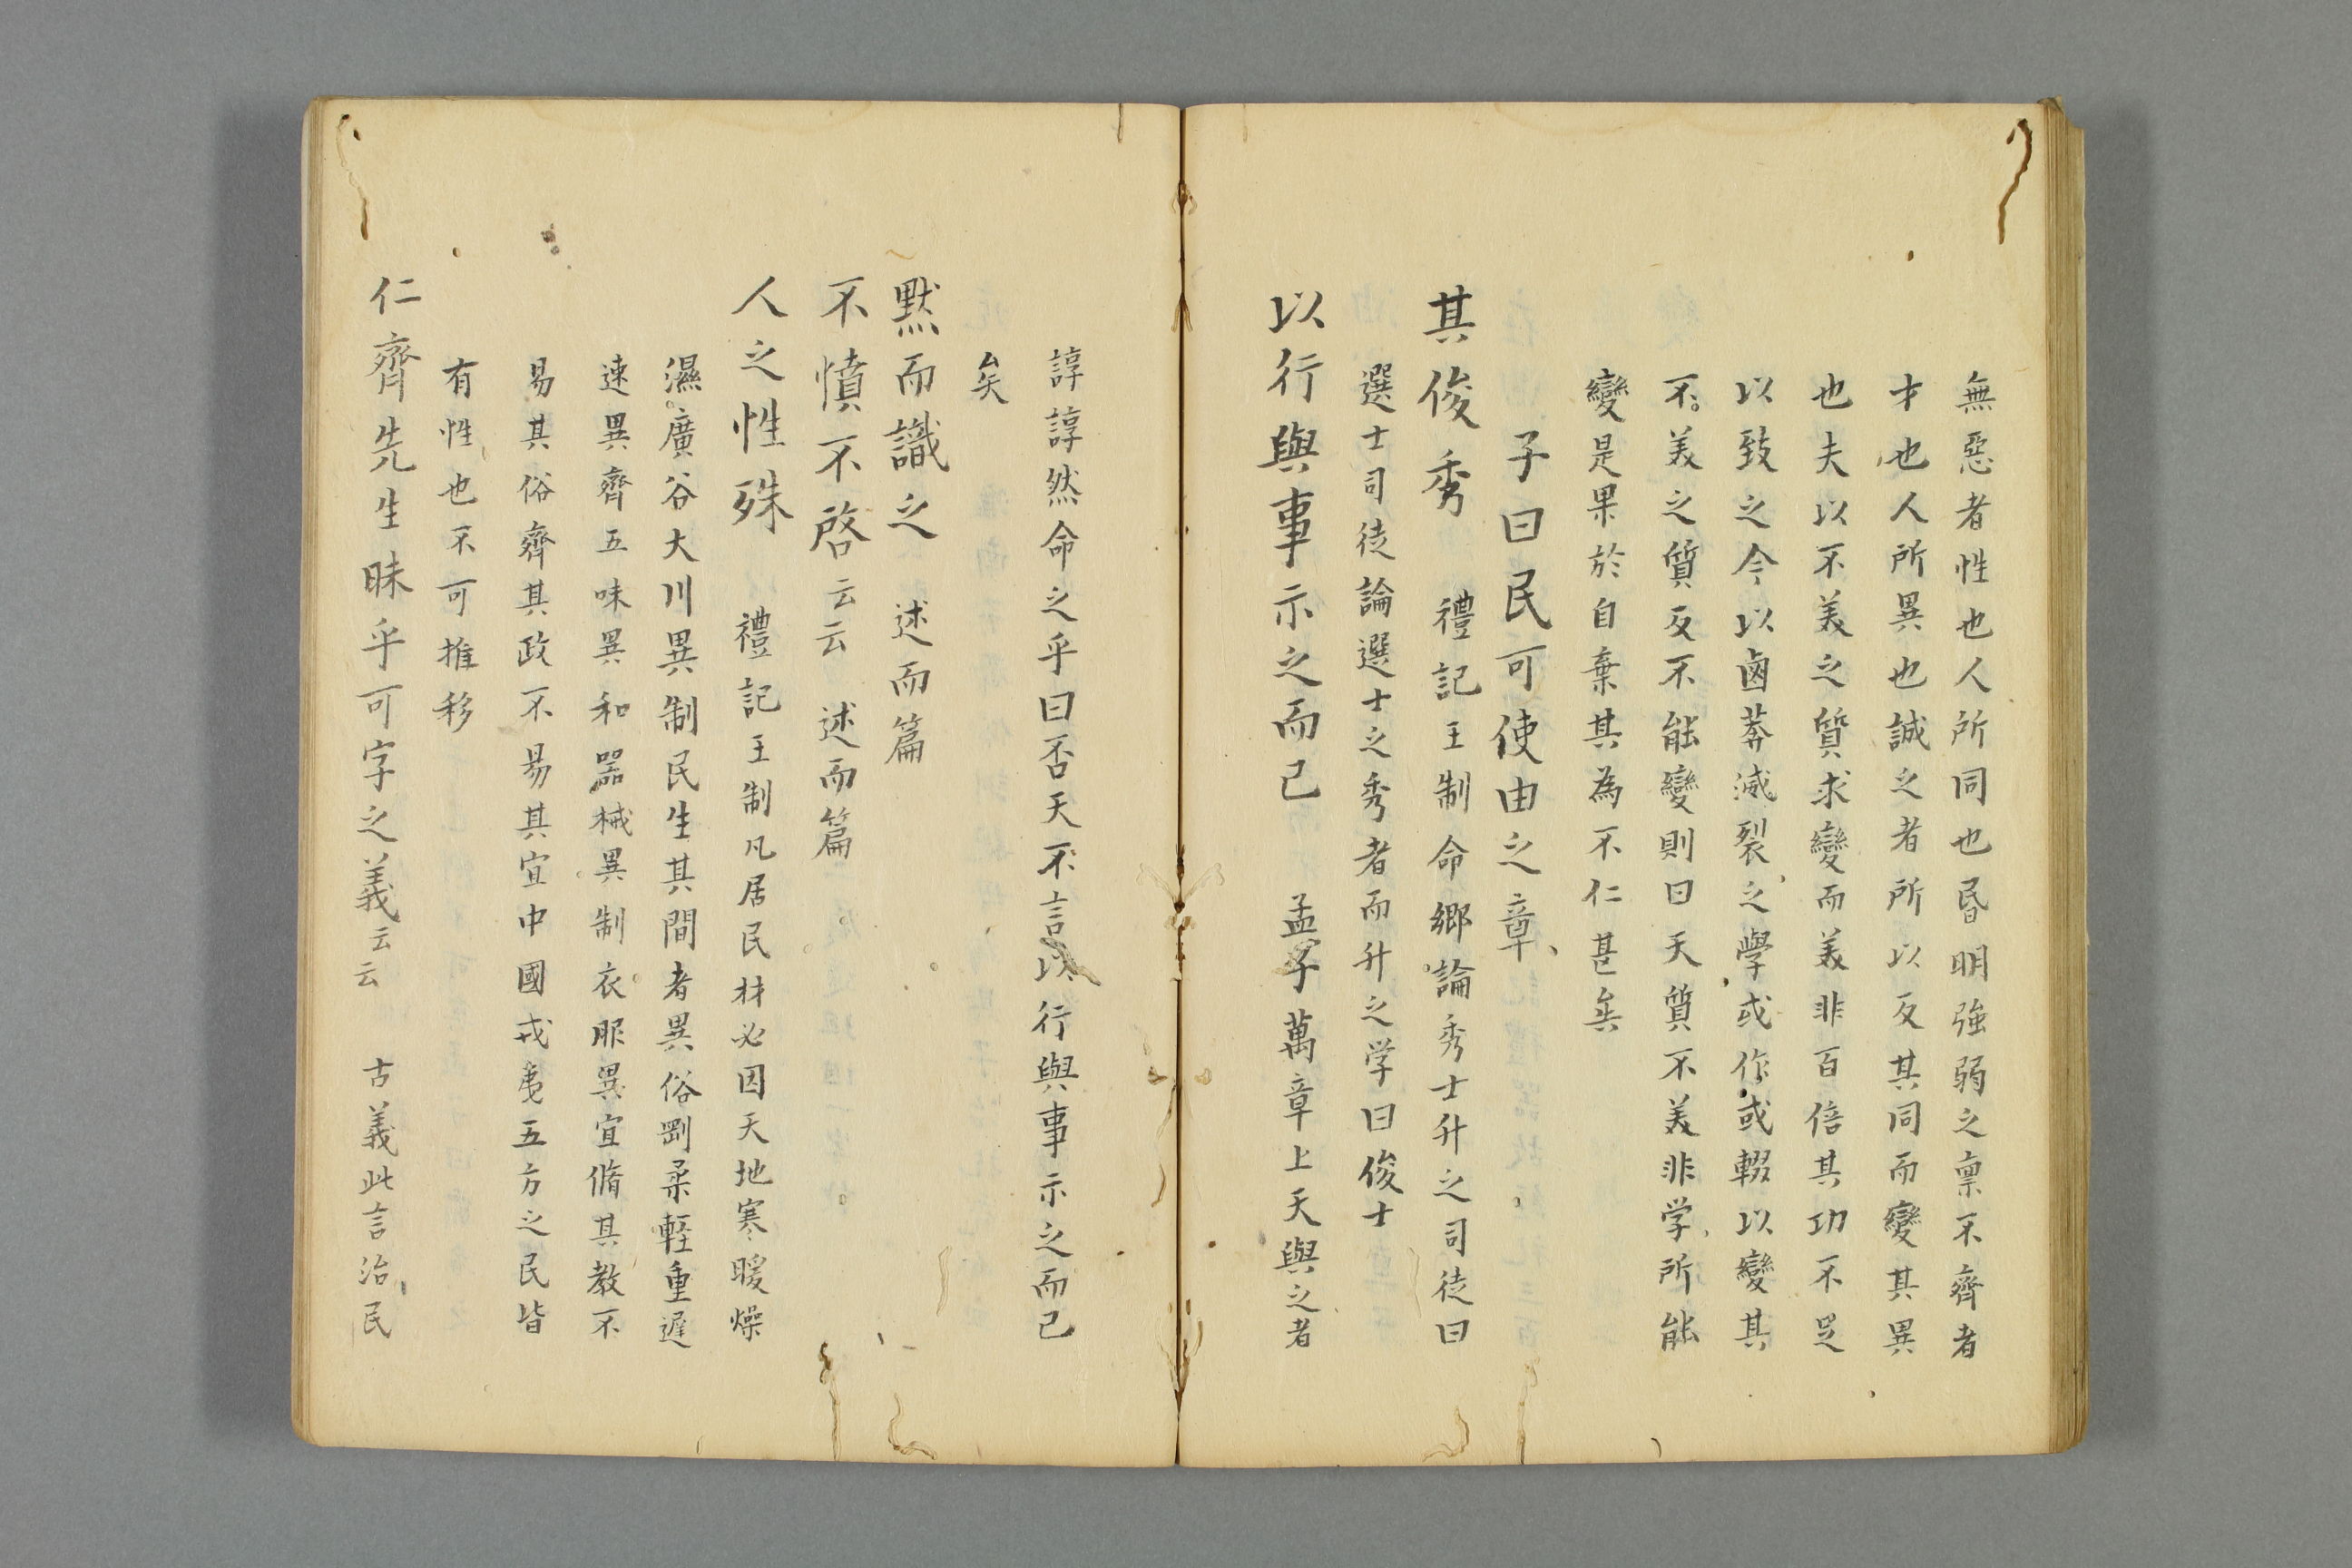 無惡者性也人所同也昏明強弱之禀不齊者
才也人所異也誠之者所以反其同而變其異
也夫以不美之質求變而美非百倍其功不足
以致之今以鹵莽滅裂之學或作或輟以變其
不美之質反不能變則曰天質不美非学所能
變是果於自棄其為不仁甚矣
子曰民可使由之章
其俊秀 禮記王制命郷論秀士升之司徒曰
選士司徒論選士之秀者而升之学曰俊士
以行與事示之而已 孟子萬章上天與之者
諄諄然命之乎曰否天不言以行與事示之而已
矣
黙而識之 述而篇
不憤不啓云云 述而篇
人之性殊 禮記王制凡居民材必因天地寒暖燥
濕廣谷大川異制民生其間者異俗剛柔軽重遲
速異齊五味異和器械異制衣服異宜脩其教不
易其俗齊其政不易其宜中國戎夷五方之民皆
有性也不可推移
仁齊先生昧乎可字之義云云 古義此言治民